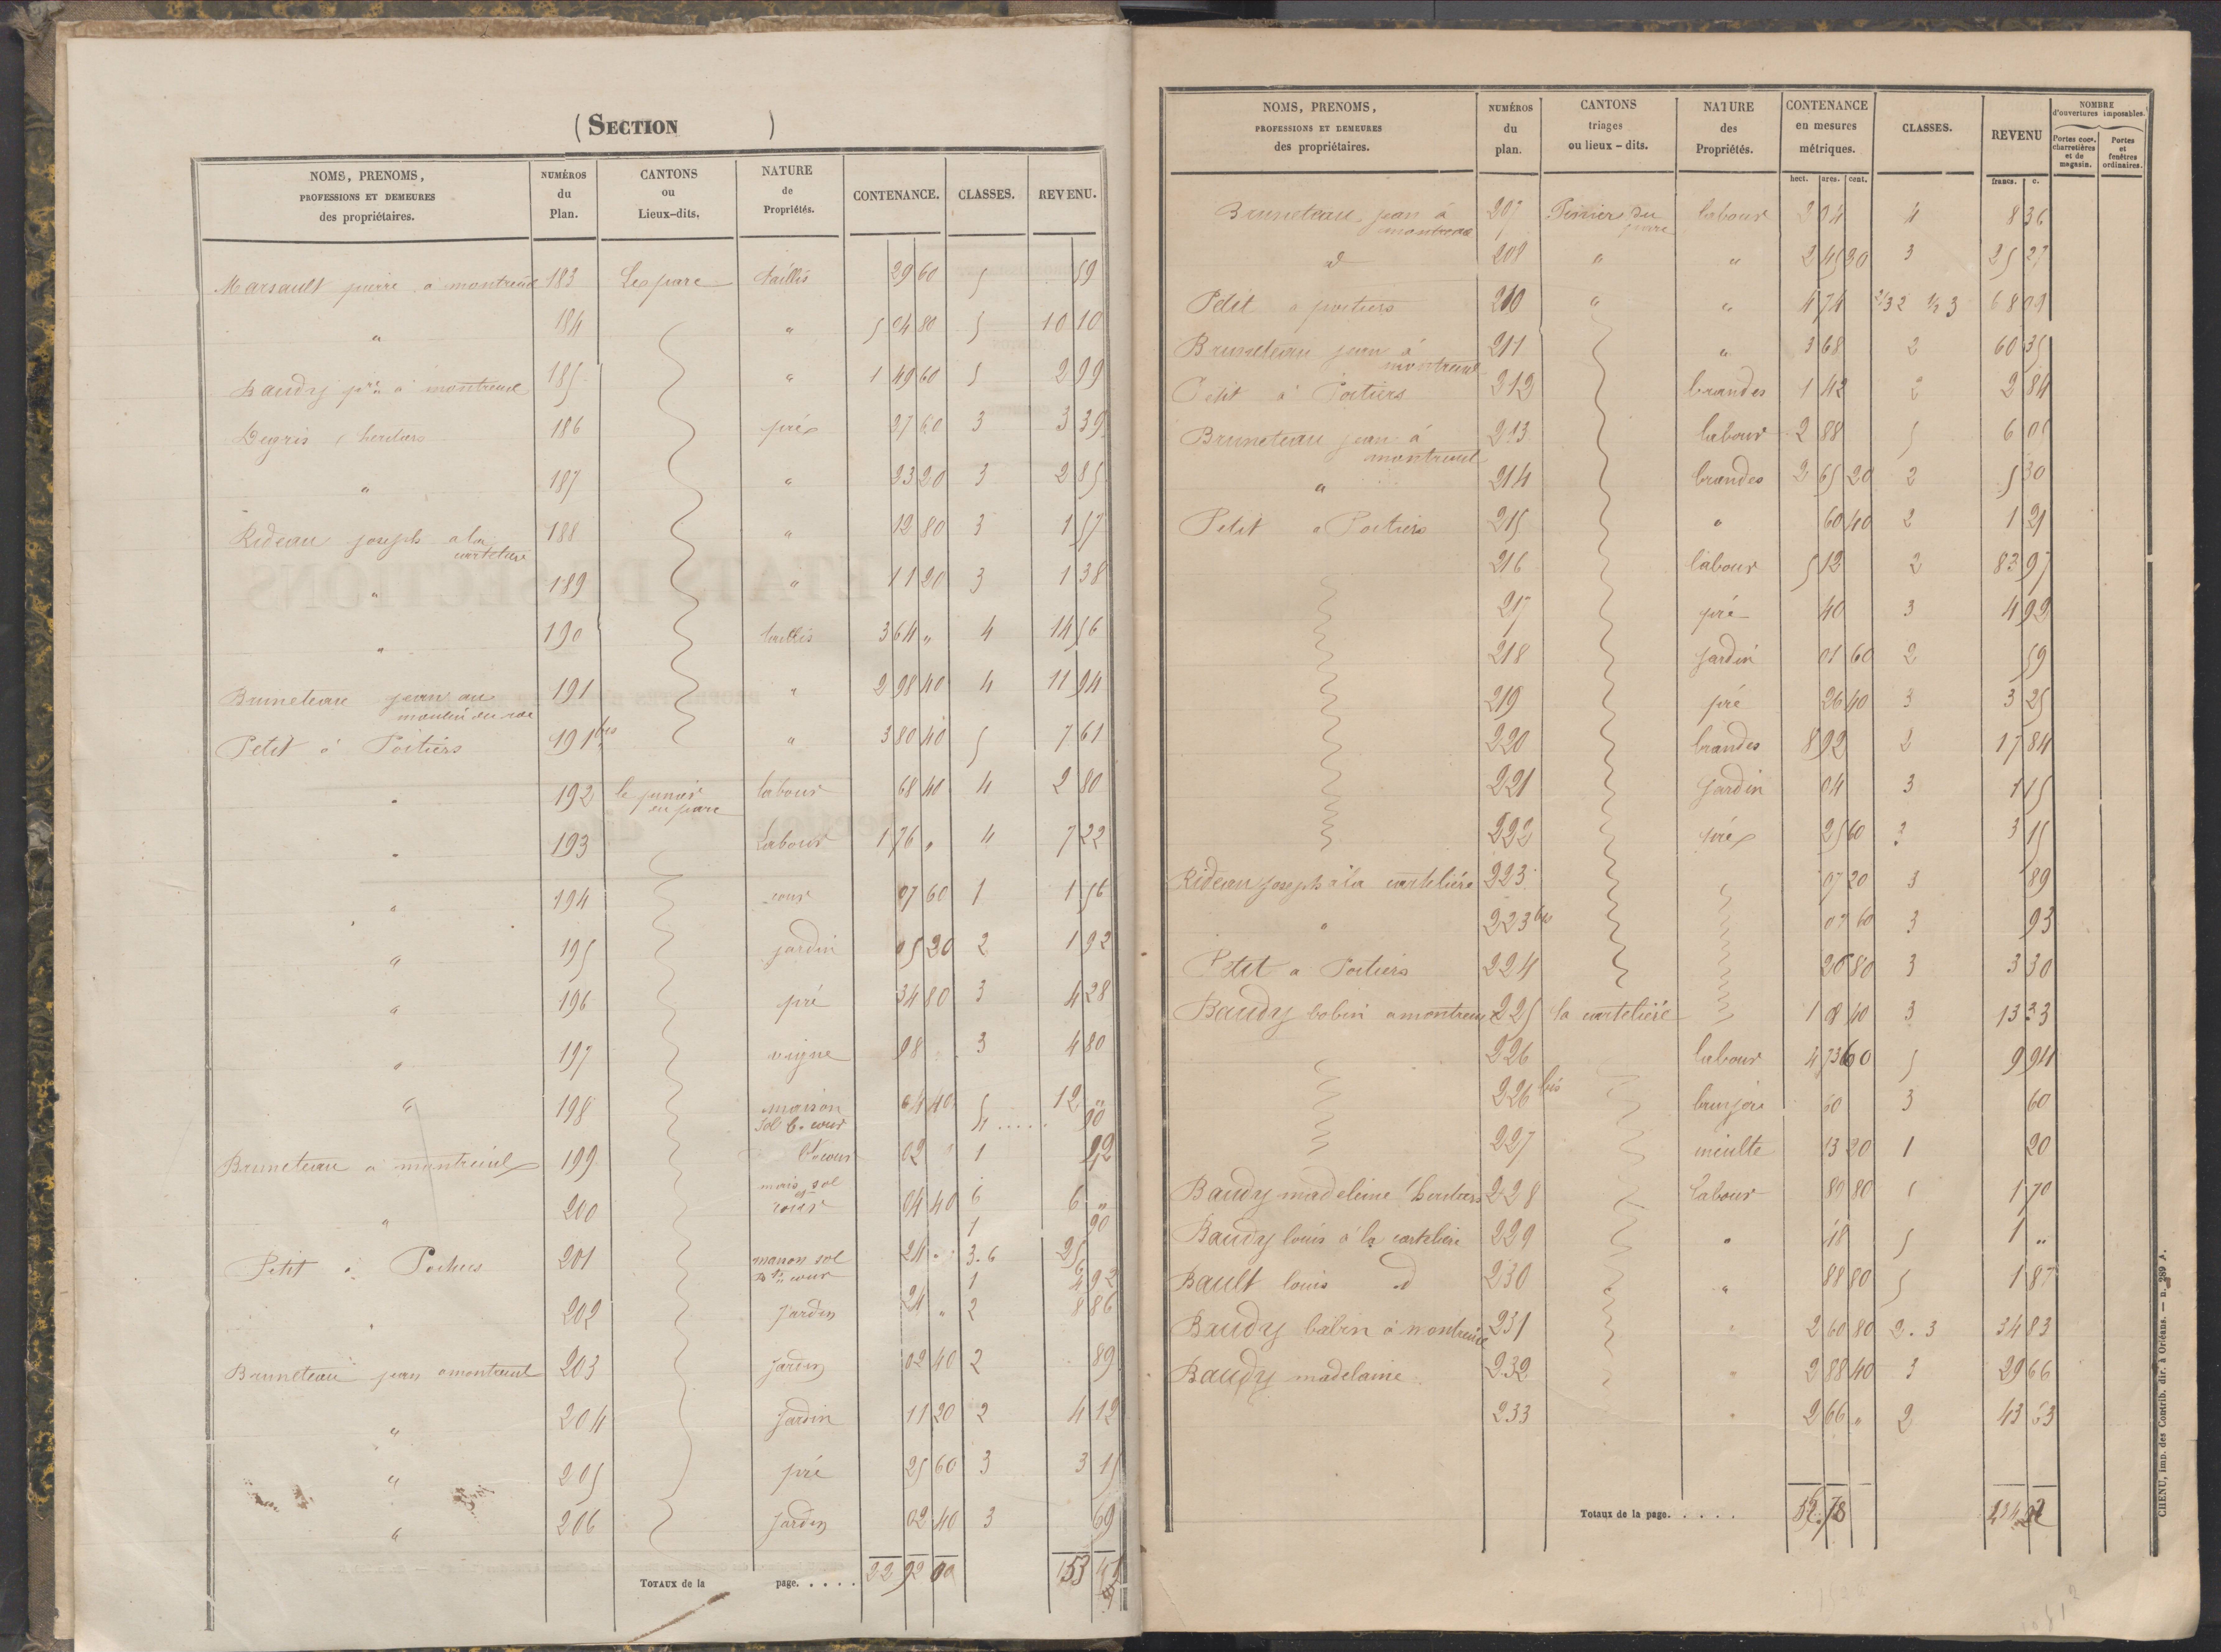 (SECTION )
NOMS, PRENOMS, PROFESSIONS ET DEMEURES des propriétaires. NUMÉROS du Plan. CANTONS ou Lieux-dits. NATURE de Propriétés. CONTENANCE. CLASSES. REVENU.
Marsault pierre à montreuil 183 Le parc taillis 29 60 5 59
" 184 " 5 04 80 5 10 10
Baudy à montreuil 185 " 1 49 60 5 2 99
Degris heritiers 186 prés 27 60 3 3 39
" 187 " 23 20 3 2 85
Rideau joseph a la carteliere 188 " 12 80 3 1 57
" 189 " 11 20 3 1 38
" 190 taillis 3 64 " 4 14 56
Bruneteau jean au moulin du roc 191 " 2 98 40 4 11 94
Petit à Poitiers 191 bis " 3 80 40 5 7 61
" 192 labour 68 40 4 2 80
" 193 Labour 1 76 " 4 7 22
" 194 cour 07 60 1 1 56
" 195 jardin 05 20 2 1 92
" 196 pré 34 80 3 4 28
" 197 vigne 98 3 4 80
" 198 maison sol b. cour 64 40 5 12 "
4 . . . . 90
Bruneteau a montreuil 199 cour 02 1
" 200 mais sol et cour 04 40 6 6 "
1 90
Petit à Poitiers 201 maison sol cour 24 " 3.6 25
1 4 92
" 202 jardin 24 " 2 8 86
Bruneteau jean a montreuil 203 jardin 02 40 2 89
" 204 jardin 11 20 2 4 12
" 205 pré 25 60 3 3 15
" 206 jardin 02 40 3 69
TOTAUX de la page. . . . . 22 92 00 153
NOMS, PRENOMS, PROFESSIONS ET DEMEURES des propriétaires. NUMÉROS du plan. CANTONS triages ou lieux-dits. NATURE des Propriétés. CONTENANCE en mesures métriques. CLASSES. REVENU NOMBRE d'ouvertures imposables.
Portes coc°. charretières et de magasin. Portes et fenêtres ordinaires.
hect. ares. cent. francs. c.
Bruneteau jean à montreuil 207 du parc labour 2 04 4 8 36
d 208 " " 2 45 30 3 25 27
Petit a poitiers 210 " " 4 74 2/3 2 1/3 3 68 09
Bruneteau jean à montreuil 211 " 3 68 2 60 35
Petit à Poitiers 212 brandes 1 42 2 2 84
Bruneteau jean à montreuil 213 labour 2 88 5 6 05
" 214 brandes 2 65 20 2 5 30
Petit a Poitiers 215 " 60 40 2 1 21
216 labour 5 12 2 83 97
217 pré 40 3 4 92
218 Jardin 01 60 2 59
219 pré 26 40 3 3 25
220 brandes 8 92 2 17 84
221 Jardin 04 3 1 15
222 prés 25 60 3 3 15
Rideau joseph à la carteliére 223 07 20 3 89
" 223 bis 07 60 3 93
Petit a Poitiers 224 26 80 3 3 30
Baudy bobin a montreuil 225 la carteliére 1 08 40 3 13 33
226 labour 4 73 60 5 9 94
226 bis 60 3 60
227 inculte 13 20 1 20
Baudy madeleine heritiers 228 Labour 80 80 5 1 70
Baudy louis à la carteliere 229 " 48 5 1 "
Bault louis d 230 " 88 80 5 1 87
Baudy babin à montreuil 231 " 2 60 80 2.3 34 83
Baudy madelaine 232 " 2 88 40 3 29 66
233 " 2 66 " 2 43 63
Totaux de la page. . . . .
CHENU, imp. des Contrib. dir. à Orléans. — n. 289 A.